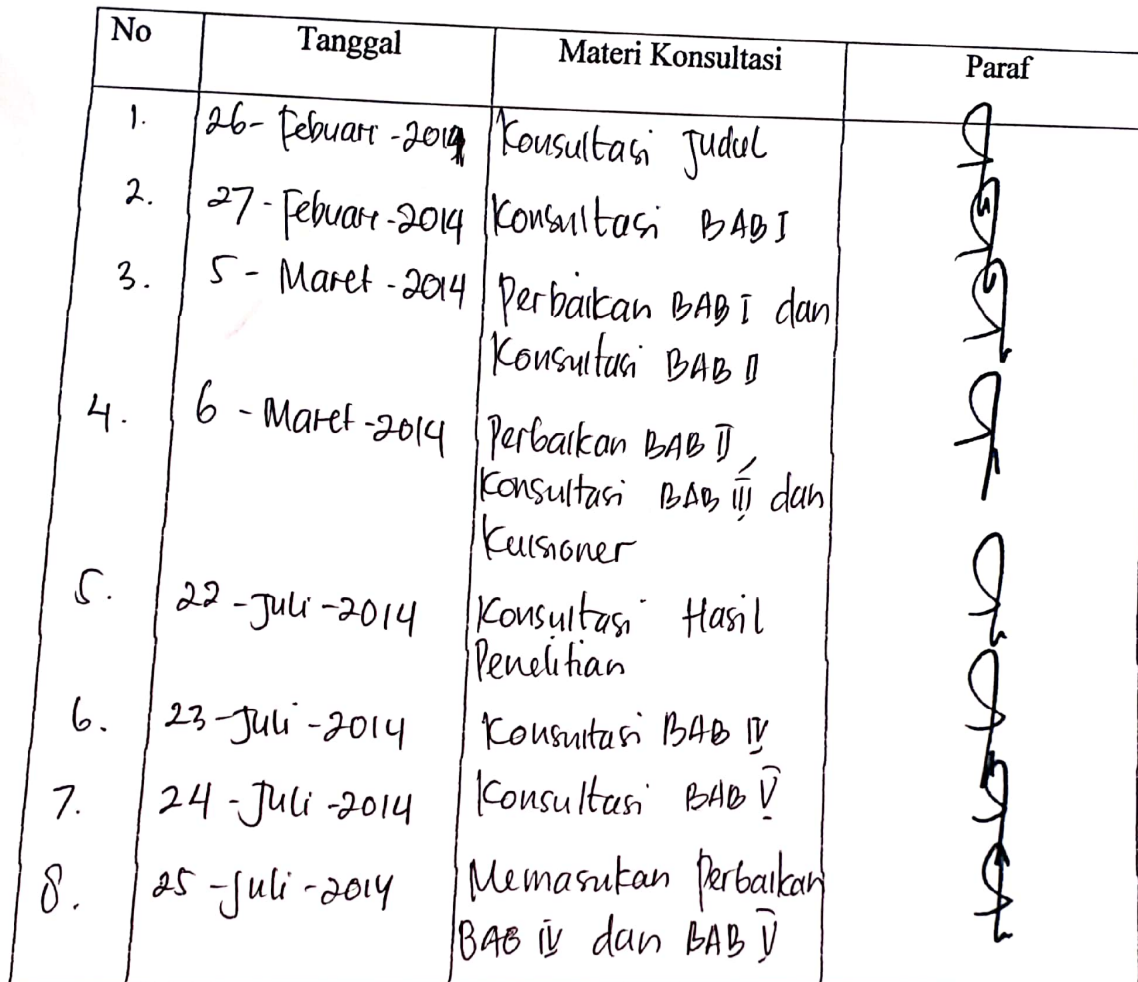 No Tanggal Materi Konsultasi Paraf
1. 26-Febuari-2014 Konsultasi Judul
2. 27-Febuari-2014 Konsultasi BAB I
3. 5-Maret-2014 Perbaikan BAB I dan
Konsultasi BAB II
4. 6-Maret-2014 Perbaikan BAB II,
Konsultasi BAB III dan
Kuisioner
5. 22-Juli-2014 Konsultasi Hasil
Penelitian
6. 23-Juli-2014 Konsultasi BAB IV
7. 24-Juli-2014 Konsultasi BAB V
8. 25-Juli-2014 Memasukan Perbaikan
BAB IV dan BAB V